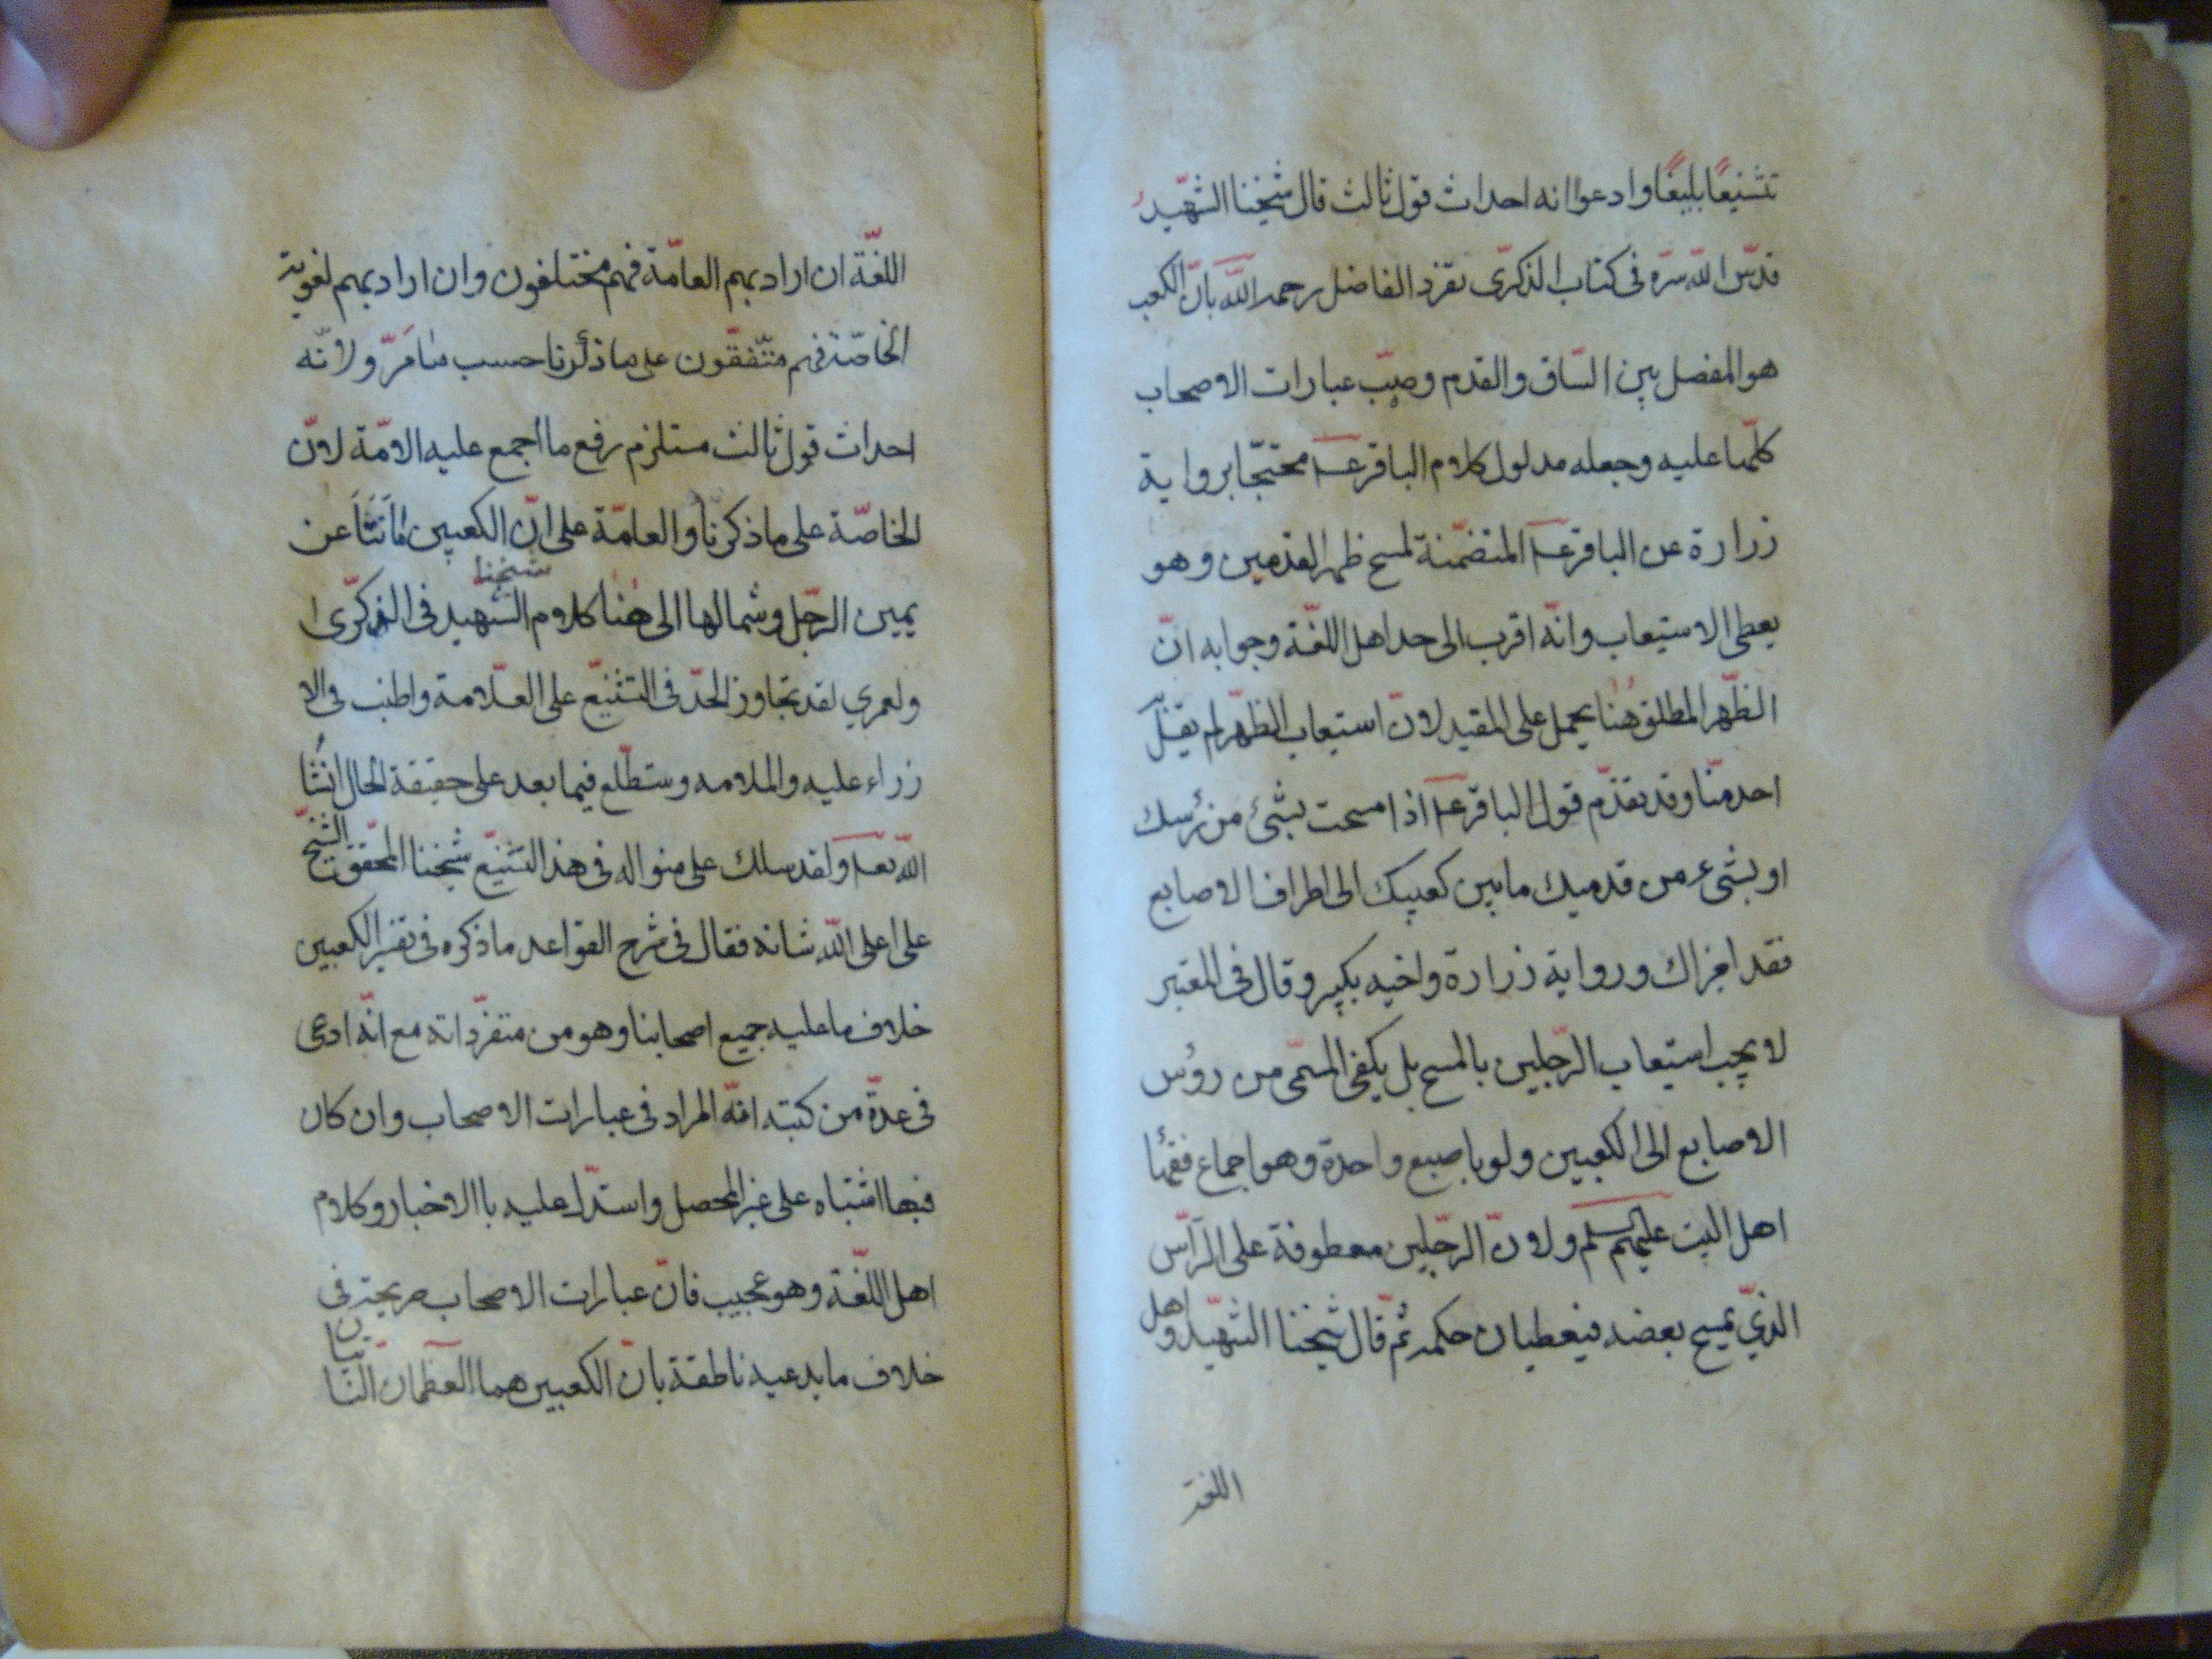 تشنيعًا بليغًا وادعوا انه احداث قول ثالث قال شيخنا الشهيد
قدّس الله سرّه في كتاب الذكرى تفرّد الفاضل رحمه اللّه بانّ الكعب
هو المفصل بين السّاق والقدم وصبّ عبارات الاصحاب
كلّها عليه وجعله مدلول كلام الباقر عـ محتجّا برواية
زرارة عن الباقر عـ المتضمّنة لمسح ظهر القدمين وهو
يعطى الاستيعاب وانّه اقرب الى حد اهل اللغّة وجوابه انّ
الظّهر المطلق هنا يحمل على المقيد لانّ استيعاب الظّهر لم يقل به
احد منّا وقد تقدّم قول الباقر عـ اذا مسحت بشئ من رأسك
او بشئ من قدميك ما بين كعبيك الى اطراف الاصابع
فقد اجزاك ورواية زرارة واخيه بكير وقال في المعتبر
لا يجب استيعاب الرّجلين بالمسح بل يكفى المسمّى من روس
الاصابع الى الكعبين ولو باصبع واحدة وهو اجماع فقهٓا
اهل البيت عليهم السلم ولانّ الرّجلين معطوفة على الرّأس
الذيّ يمسح بعضه فيعطيان حكمه ثمّ قال شيخنا الشهيد واهل
اللغة
اللغّة ان اراد بهم العامّة فهم مختلفون وان اراد بهم لغوية
الخاصّة فهم متّفقون على ما ذكرنا حسب ما مرّ ولانّه
احداث قول ثالث مستلزم رفع ما اجمع عليه الامّة لانّ
الخاصّة على ما ذكرنا والعامّة على انّ الكعبين ما نتأ عن
يمين الرّجل وشمالها الى هنا كلام شيخنا الشّهيد في الذكرّى
ولعمري لقد تجاوز الحدّ في التشنيّع على العلّامة واطنب في الا
زراء عليه والملامه وستطّلع فيما بعد على حقيقة الحال انشٓا
اللّه تعـ ولقد سلك على منواله في هذا التشنيّع شيخنا المحقّق الشيخ
على اعلى اللّه شانه فقال في شرح القواعد ما ذكره في تفسير الكعبين
خلاف ما عليه جميع اصحابنا وهو من متفرّداته مع انّه ادعى
في عدّة من كتبه انّه المراد في عبارات الاصحاب وان كان
فيها اشتباه على غير المحصل واستدل عليه باالاخبار وكلام
اهل اللغّة وهو عجيب فانّ عبارات الاصحاب صريحة في
خلاف ما يدعيه ناطقة بانّ الكعبين هما العظمان النّاتيان